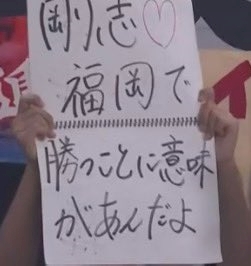 剛志♡
福岡で
勝つことに意味
があんだよ